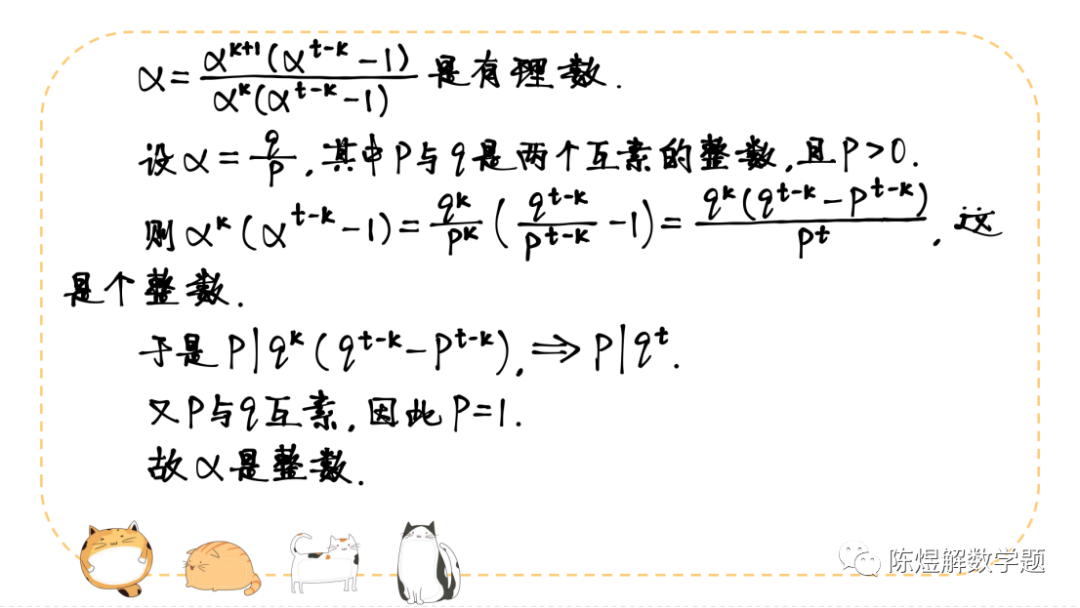 α=α^{k+1}(α^{t-k}-1)/α^k(α^{t-k}-1) 是有理数.
设α=q/p,其中p与q是两个互素的整数,且p>0.
则α^k(α^{t-k}-1)=q^k/p^k(q^{t-k}/p^{t-k}-1)=q^k(q^{t-k}-p^{t-k})/p^t,这
是个整数.
于是p|q^k(q^{t-k}-p^{t-k}),⇒p|q^t.
又p与q互素,因此p=1.
故α是整数.
陈煜解数学题